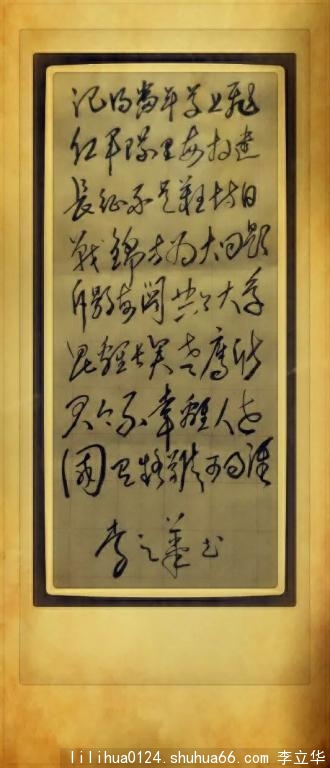 记得当年草上飛
红军队里每相违
長征不是難堪日
戰錦方为大问题
斥鷃每闻欺大鸟
昆鷄长笑老鷹非
君今不幸離人世
國有疑難可问谁
李立華书
lilihua0124.shuhua66.com 李立华